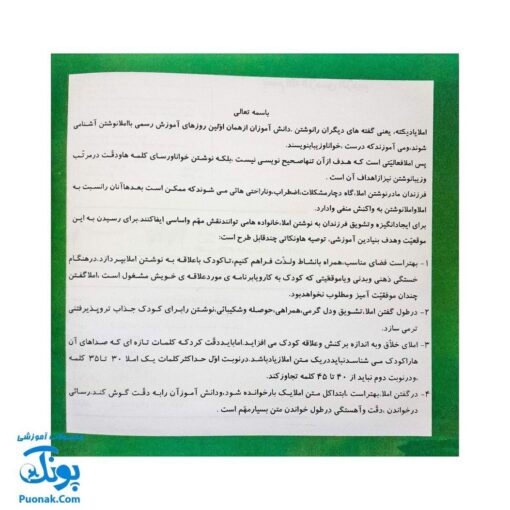 باسمه تعالی
املا یا دیکته، یعنی گفته های دیگران را نوشتن .دانش آموزان از همان اوّلین روزهای آموزش رسمی با املا نوشتن آشنا می
شوند،و می آموزند که درست ،خوانا و زیبا بنویسند.
پس املا فعالیّتی است که هدف از آن تنها صحیح نویسی نیست ،بلکه نوشتن خوانا و رسای کلمه ها و دقّت در مرتّب
و زیبا نوشتن نیز از اهداف آن است .
فرزندان ما در نوشتن املا،گاه دچار مشکلات،اضطراب،و ناراحتی هائی می شوند که ممکن است بعدها آنان را نسبت به
املا و املا نوشتن به واکنش منفی وا دارد.
برای ایجاد انگیزه و تشویق فرزندان به نوشتن املا،خانواده ها می توانند نقش مهّم و اساسی ایفا کنند.برای رسیدن به این
موقعیّت و هدف بنیادین آموزشی، توصیه ها و نکاتی چند قابل طرح است:
۱- بهتر است فضای مناسب،همراه با نشاط و لذت فراهم کنیم،تا کودک با علاقه به نوشتن املا بپردازد.در هنگام
خستگی ذهنی و بدنی و یا موقعیّتی که کودک به کار و یا برنامه ی مورد علاقه ی خویش مشغول است ،املا گفتن
چندان موفقیّت آمیز و مطلوب نخواهد بود.
۲- در طول گفتن املا،تشویق و دل گرمی،همراهی،حوصله و شکیبائی،نوشتن را برای کودک جذاب تر و پذیرفتنی
تر می سازد.
۳- املای خلّاق و به اندازه بر کنش و علاقه کودک می افزاید.اما باید دقّت کرد که کلمات تازه ای که صداهای آن
ها را کودک می شناسد نباید در یک متن املا زیاد باشد.در نوبت اوّل حداکثر کلمات یک املا ۳۰ تا ۳۵ کلمه
،و در نوبت دوم نباید از ۴۰ تا ۴۵ کلمه تجاوز کند.
۴- در گفتن املا،بهتر است ،ابتدا کل متن املا یک بار خوانده شود،و دانش آموزآن را به دقّت گوش کند.رسائی
در خواندن ،دقّت و آهستگی در طول خواندن متن بسیار مهّم است .
محصولات آموزشی
پونک
Puonak.Com